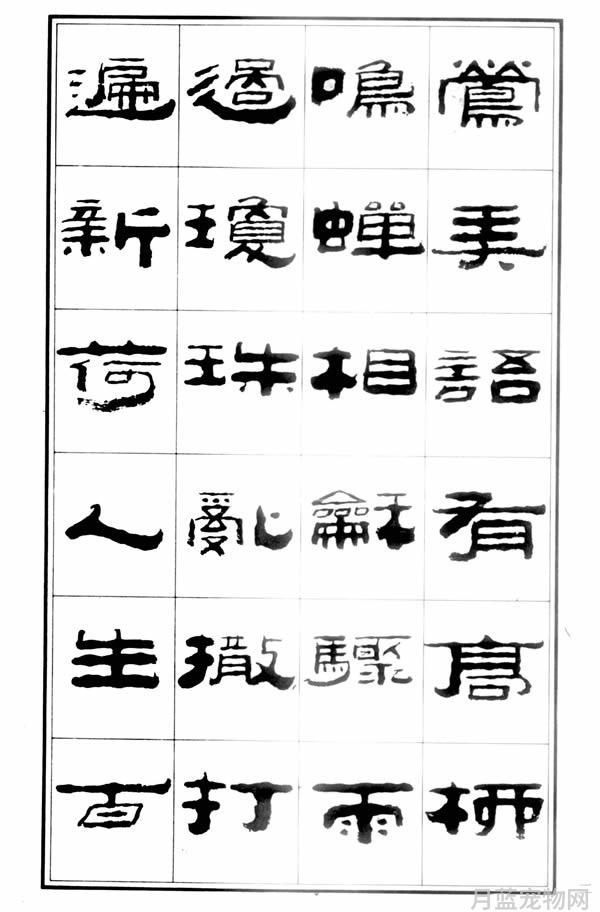 鶯弄語有高柳
鳴蟬相龢驟雨
過瓊珠亂撒打
遍新荷人生百
月蓝宠物网